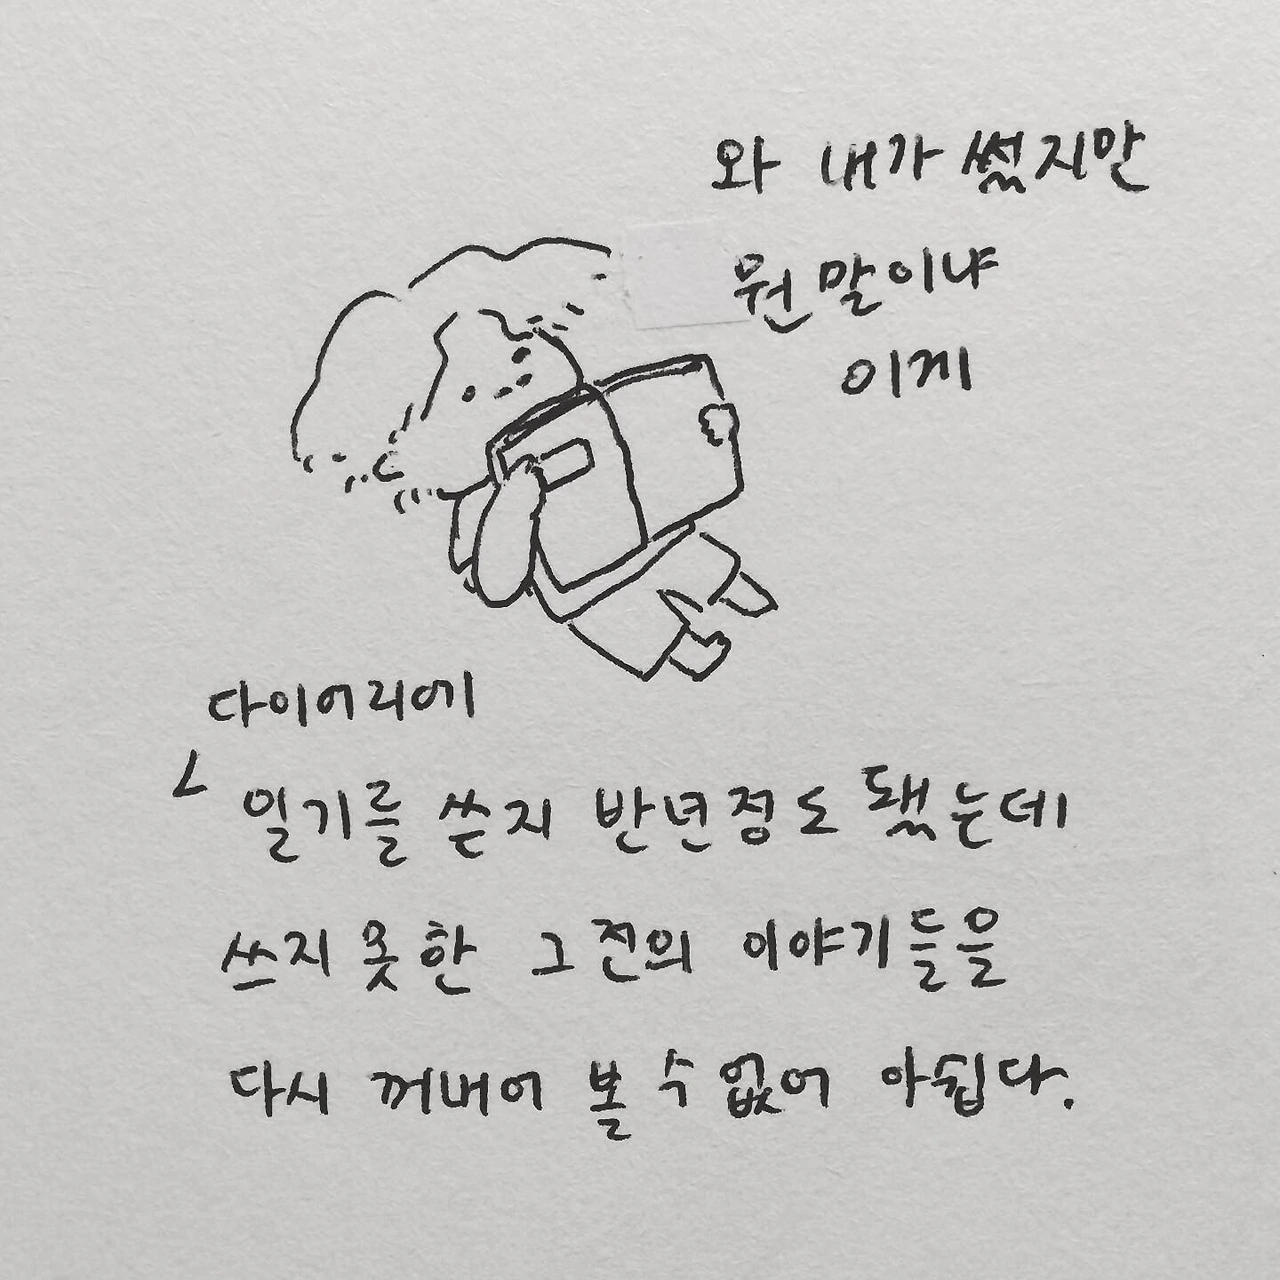 와 내가 썼지만
뭔 말이냐
이게
다이어리에
일기를 쓴지 반년정도 됐는데
쓰지 못한 그 전의 이야기들을
다시 꺼내어 볼 수 없어 아쉽다.